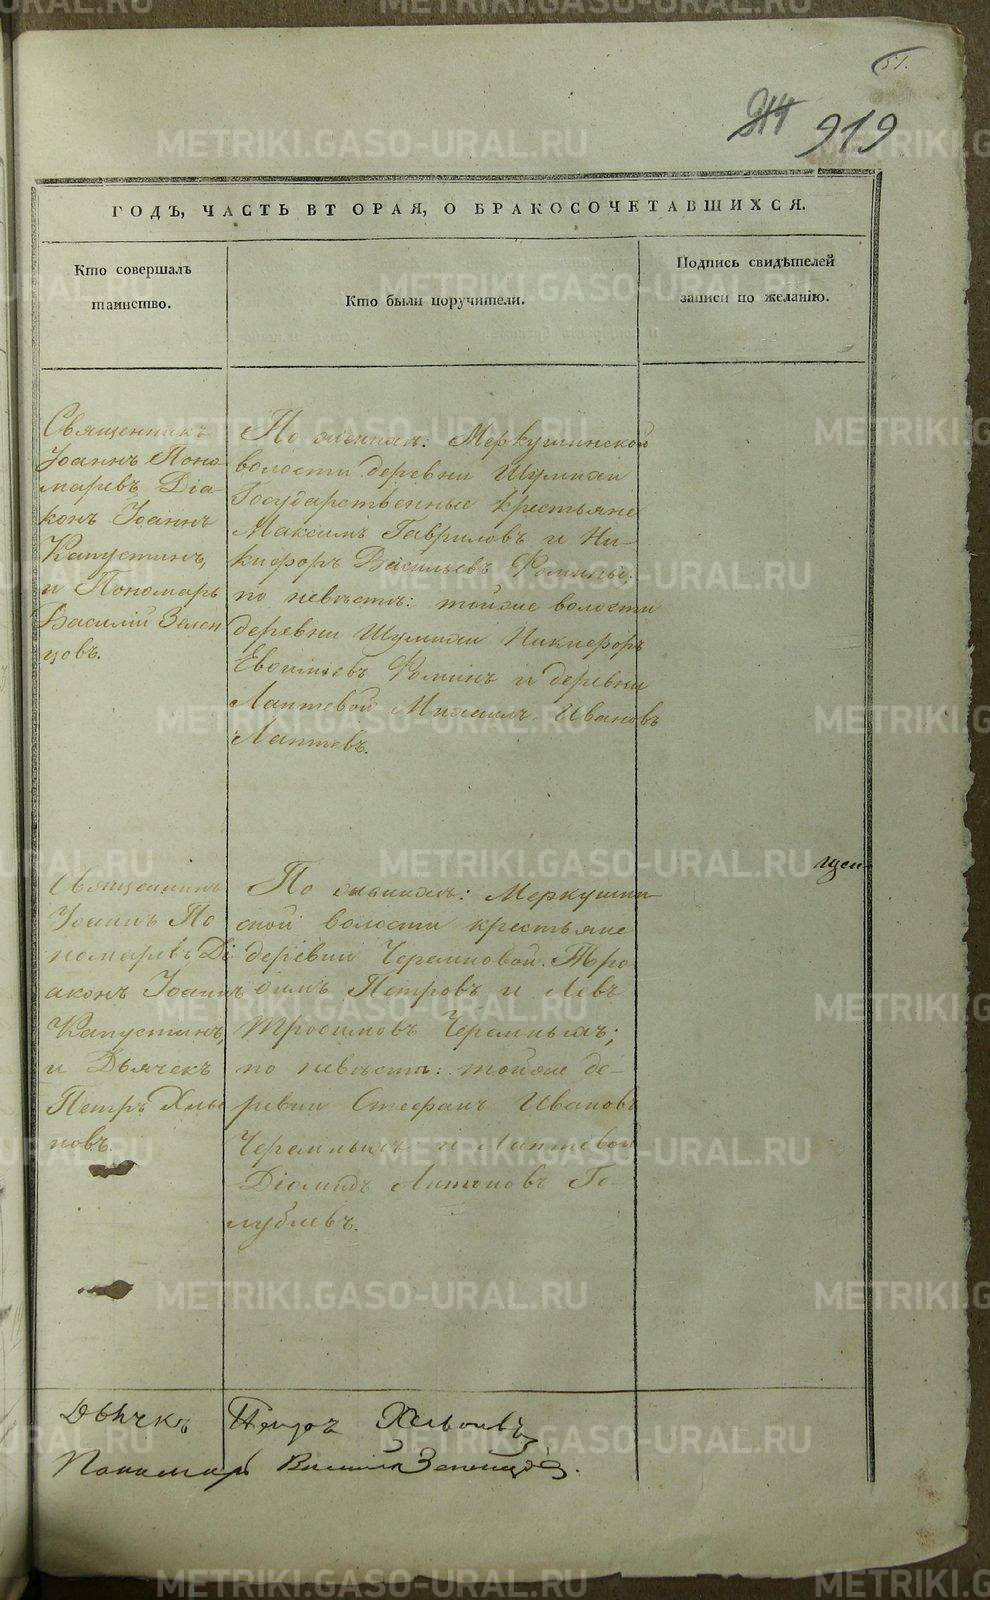 51.
914 919
ГОДЪ, ЧАСТЬ ВТОРАЯ, О БРАКОСОЧЕТАВШИХСЯ.
Кто совершалъ
таинство.
Кто были поручители.
Подпись свидѣтелей
записи по желанію.
Священникъ
Іоаннъ Поно-
маревъ Діа-
конъ Іоаннъ
Капустинъ,
и Пономарь
Василій Зелен
цовъ.
По женихѣ: Меркушинской
волости деревни Шумихи
Государственные крестьяне
Максимъ Гавриловъ и Ни-
кифоръ Васильевъ Фомины;
по невѣстѣ: тойже волости
деревни Шумихи Никифоръ
Фоминъ и деревни
Лаптевой Михаилъ Ивановъ
Лаптевъ.
Священникъ
Іоаннъ По
номаревъ Ді
аконъ Іоаннъ
Капустинъ,
и Дьячекъ
Петръ Хлы
новъ.
По женихѣ: Меркушин
ской волости крестьяне
деревни Черемновой Тро
димъ Петровъ и Левъ
Черемныхъ;
по невѣстѣ: тойже де-
ревни Стефанъ Ивановъ
Черемныхъ и Лаптевой
Діомидъ Го
лубевъ.
щен
Дьячекъ Петръ
Пономарь Василій Зеленцовъ.
METRIKI.GASO-URAL.RU